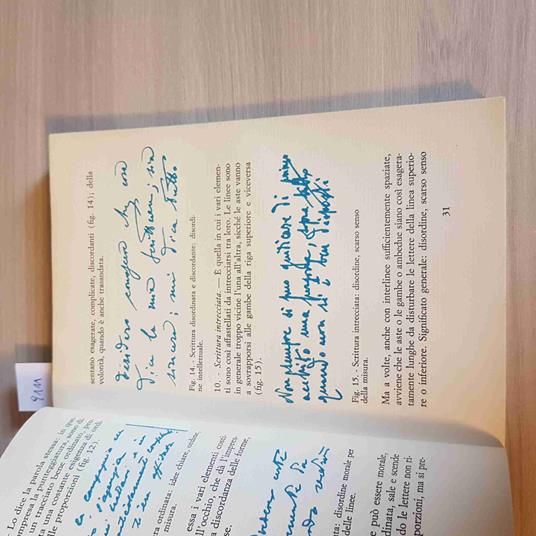 sentano esagerate, complicate, discordanti (fig. 14); della
volontà, quando è anche trasandata.
desidero
dica la mia
sincera; mi dica tutto
Fig. 14. - Scrittura disordinata e discordante: disordi-
ne intellettuale.
10. - Scrittura intrecciata. — È quella in cui i vari elemen-
ti sono così affastellati da intrecciarsi tra loro. Le linee sono
in generale troppo vicine l'una all'altra, sicché le aste vanno
a sovrapporsi alle gambe della riga superiore e viceversa
(fig. 15).
Non sempre si può giudicare di primo
acchito una persona, sopra tutto
quando non si è ben disposti
Fig. 15. - Scrittura intrecciata: disordine, scarso senso
della misura.
Ma a volte, anche con interlinee sufficientemente spaziate,
avviene che le aste o le gambe o ambedue siano così esagera-
tamente lunghe da disturbare le lettere della linea superio-
re o inferiore. Significato generale: disordine, scarso senso
31
9111
Lo dice la parola stessa: in
compresa la punteggiatura, sono di
un tracciato bene ordinato
una costante esigenza di
proporzioni (fig. 12).
ordinata: idee chiare, ordine,
misura.
essa i vari elementi così
all'occhio, che dà l'impres-
discordanza delle forme,
disordine morale per
delle linee.
può essere morale,
dinata, sale e scende
do le lettere non ri-
porzioni, ma si pre-